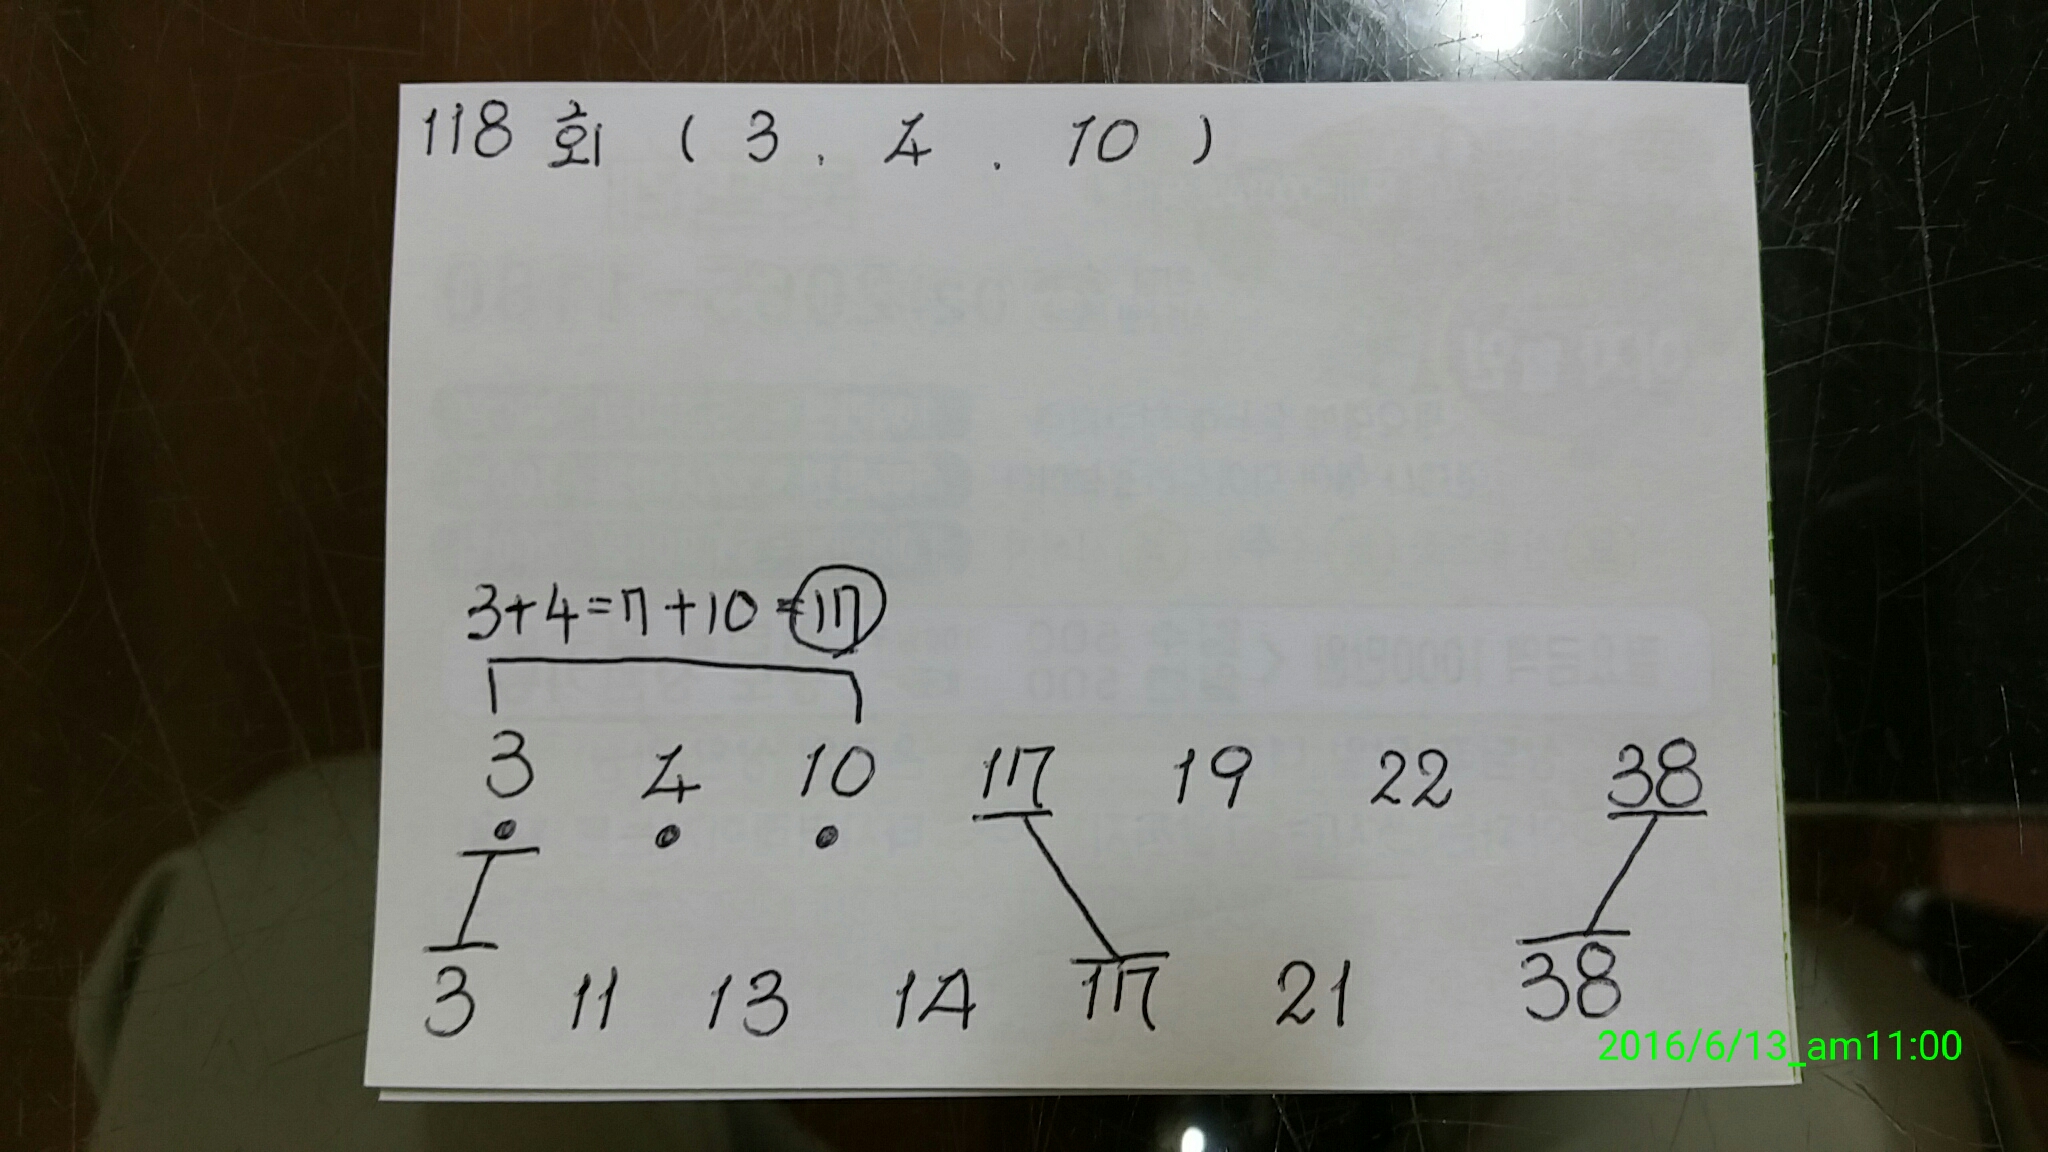 118 회 ( 3 . 4 . 10 )
3+4=7+10=17
3 4 10 17 19 22 38
3 11 13 14 17 21 38
2016/6/13_am11:00